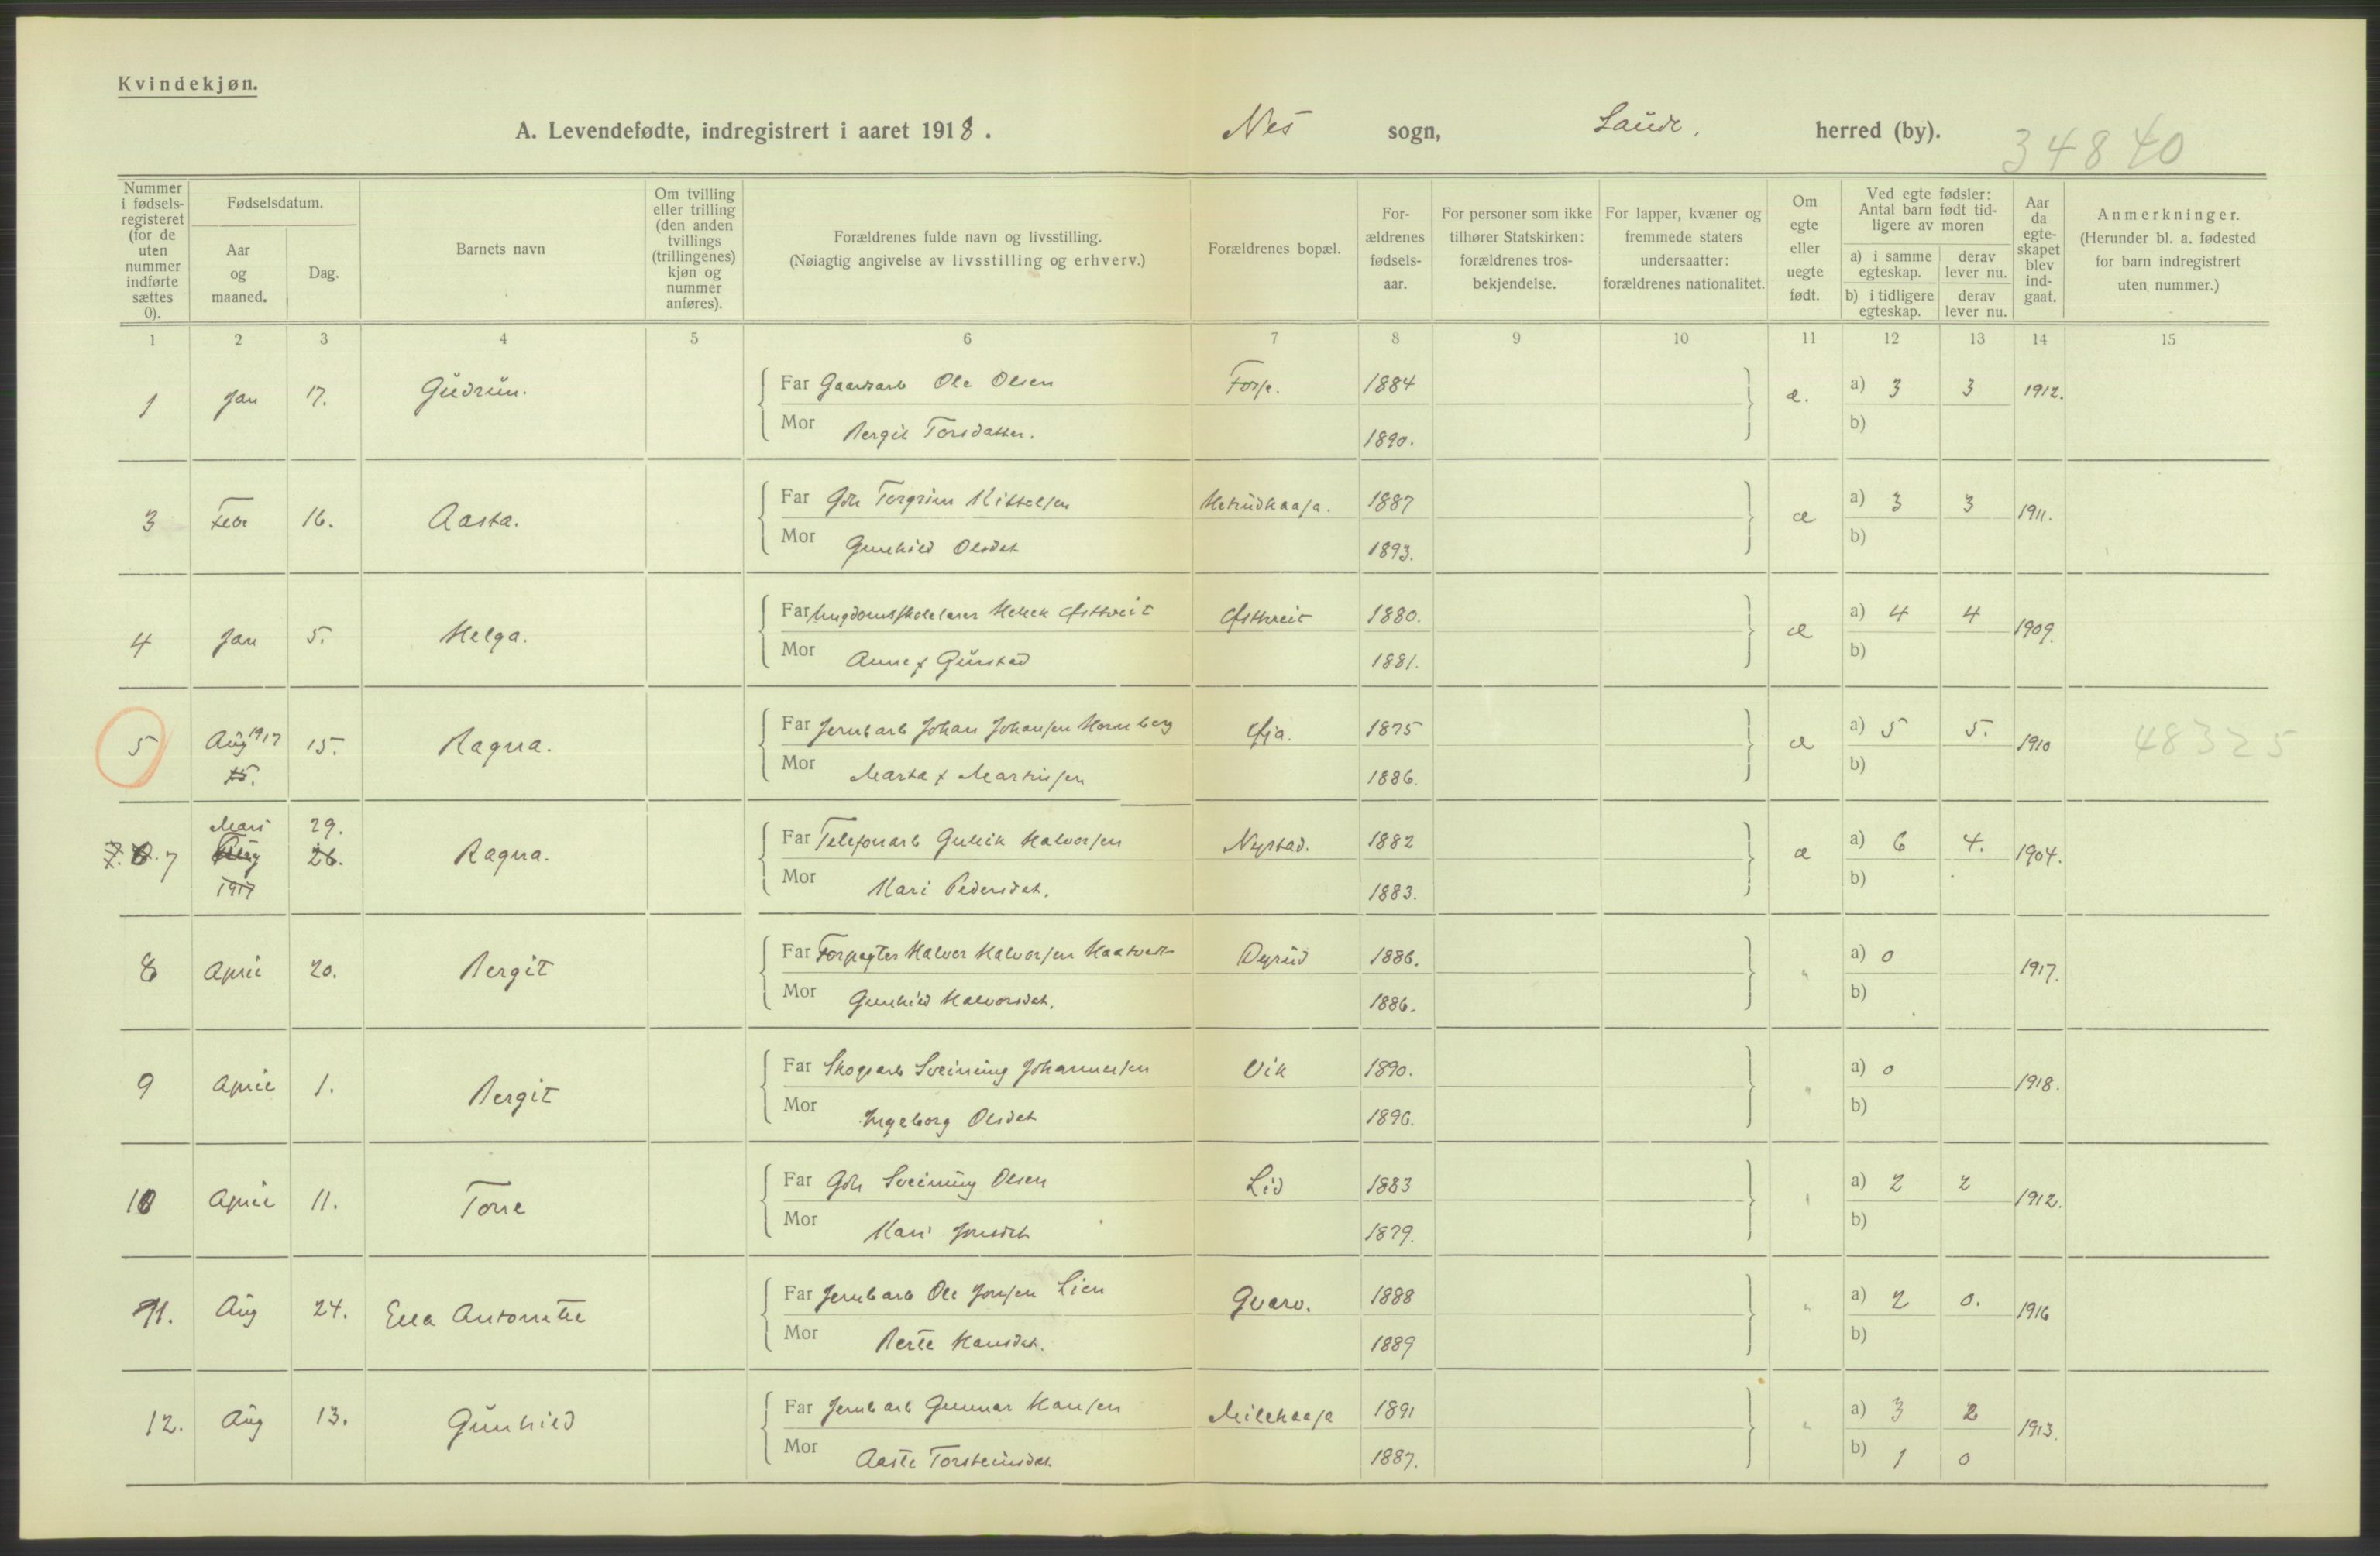 Kvindekjøn.
A. Levendefødte, indregistrert i aaret 1918. Nes sogn, Saude, herred (by).
34840
Nummer i fødsels-registeret (for de uten nummer indførte sættes 0).
Fødselsdatum.
Aar og maaned.
Dag.
Barnets navn
Om tvilling eller trilling (den anden tvillings (trillingenes) kjøn og nummer anføres).
Forældrenes fulde navn og livsstilling.
(Nøiagtig angivelse av livsstilling og erhverv.)
Forældrenes bopæl.
For-ældrenes fødsels-aar.
For personer som ikke tilhører Statskirken: forældrenes tros-bekjendelse.
For lapper, kvæner og fremmede staters undersaatter: forældrenes nationalitet.
Om egte eller uegte født.
Ved egte fødsler: Antal barn født tid-ligere av moren
a) i samme egteskap. derav lever nu.
b) i tidligere egteskap. derav lever nu.
Aar da egte-skapet blev ind-gaat.
Anmerkninger.
(Herunder bl. a. fødested for barn indregistrert uten nummer.)
1 2 3 4 5 6 7 8 9 10 11 12 13 14 15
1 Jan 17. Gudrun. Far Gaardarb Ole Olsen Forje. 1884 æ. a) 3 3 1912.
Mor Bergit Torsdatter. 1890. b)
3 Febr 16. Aasta. Far Gbr Torgrim Kittelsen 1887 æ a) 3 3 1911.
Mor Gunhild Olsdat 1893. b)
4 Jan 5. Helga. Far Ungdomsskolelærer Østtveit Østtveit 1880. æ a) 4 4 1909.
Mor Anne f Gurstad 1881. b)
5 Aug 1917 15. Ragna. Far Jernb arb Johan Johansen Hornberg Øja. 1875 æ a) 5 5. 1910 48325
15. Mor Marta f Martinsen 1886. b)
7 Mars 29. Ragna. Far Telefonarb Gullik Halvorsen Nystad. 1882 æ a) 6 4. 1904.
26. 1917 Mor Kari Pedersdat. 1883. b)
8 April 20. Bergit Far Forpagter Halvor Halvorsen Haatveit Dyrud 1886. " a) 0 1917.
Mor Gunhild Halvorsdat. 1886. b)
9 April 1. Bergit Far Skogsarb Sveinung Johannessen Vik 1890. " a) 0 1918.
Mor Ingeborg Olsdat 1896. b)
10 April 11. Tone Far Gbr Sveinung Olsen Lid 1883 " a) 2 2 1912.
Mor Kari Jonsdat 1879. b)
11. Aug 24. Ella Antonette Far Jernb arb Ole Jonsen Lien Gvarv. 1888 " a) 2 0. 1916
Mor Berte Hansdat. 1889 b)
12. Aug 13. Gunhild Far Jernb arb Gunnar Hansen Milekaasa 1891 " a) 3 2 1913.
Mor Aaste Torsteinsdat. 1887. b) 1 0